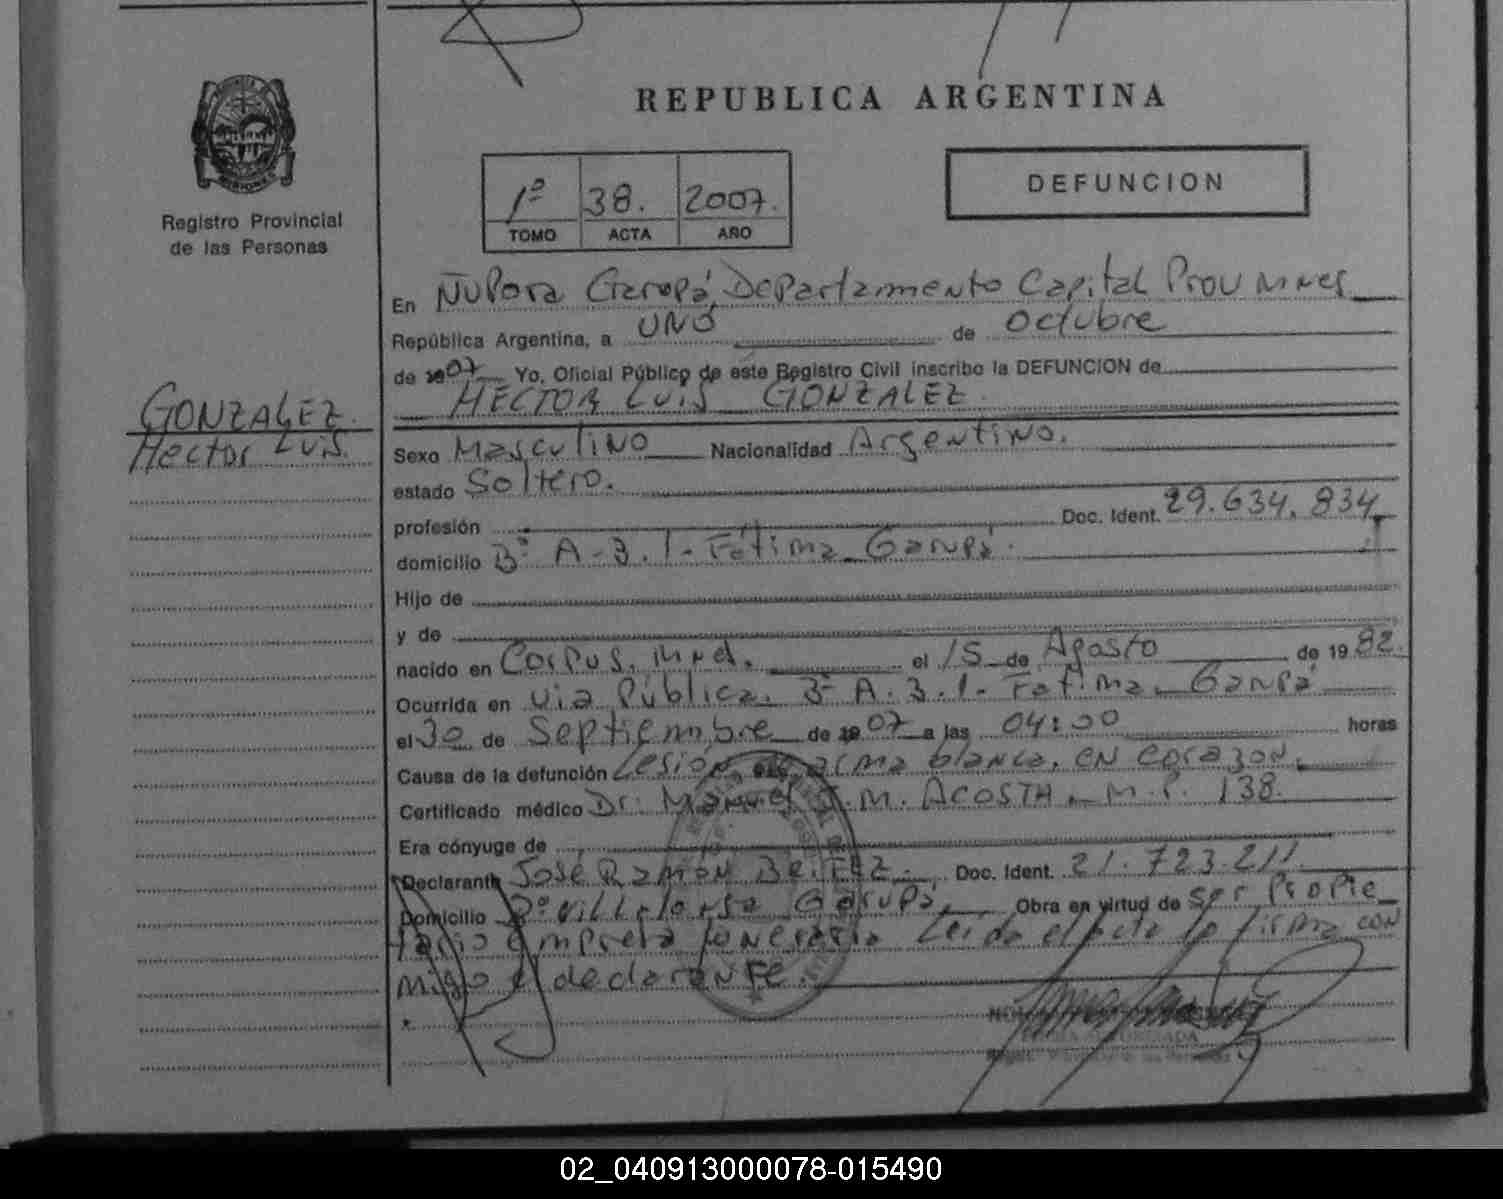 REPUBLICA ARGENTINA
MISIONES
Registro Provincial
de las Personas
1º 38. 2007.
TOMO ACTA AÑO
DEFUNCION
En Ñu Pora Garupá, Departamento Capital Prov Mnes
República Argentina, a UNO de Octubre
de 1907 Yo, Oficial Público de este Registro Civil inscribo la DEFUNCION de
HECTOR LUIS GONZALEZ.
GONZALEZ.
Hector Luis.
Sexo Masculino Nacionalidad Argentino.
estado Soltero.
profesión Doc. Ident. 29.634.834
domicilio Bº A-3.1- Fátima Garupá.
Hijo de
y de
nacido en Corpus, Mnes. el 15 de Agosto de 1982.
Ocurrida en Via Pública. Bº A.3.1- Fatima. Garupá
el 30 de Septiembre de 1907 a las 04:00 horas
Causa de la defunción Lesión de arma blanca, en corazon.
Certificado médico Dr. Manuel M. ACOSTA. M.P. 138.
Era cónyuge de
Declarante José Ramón BeiTEZ. Doc. Ident. 21.723.211
Domicilio Bº Villalonga Garupá, Obra en virtud de ser Propie
tario empresa funeraria Leida el acta la firma con
migo el declarante.
02_040913000078-015490